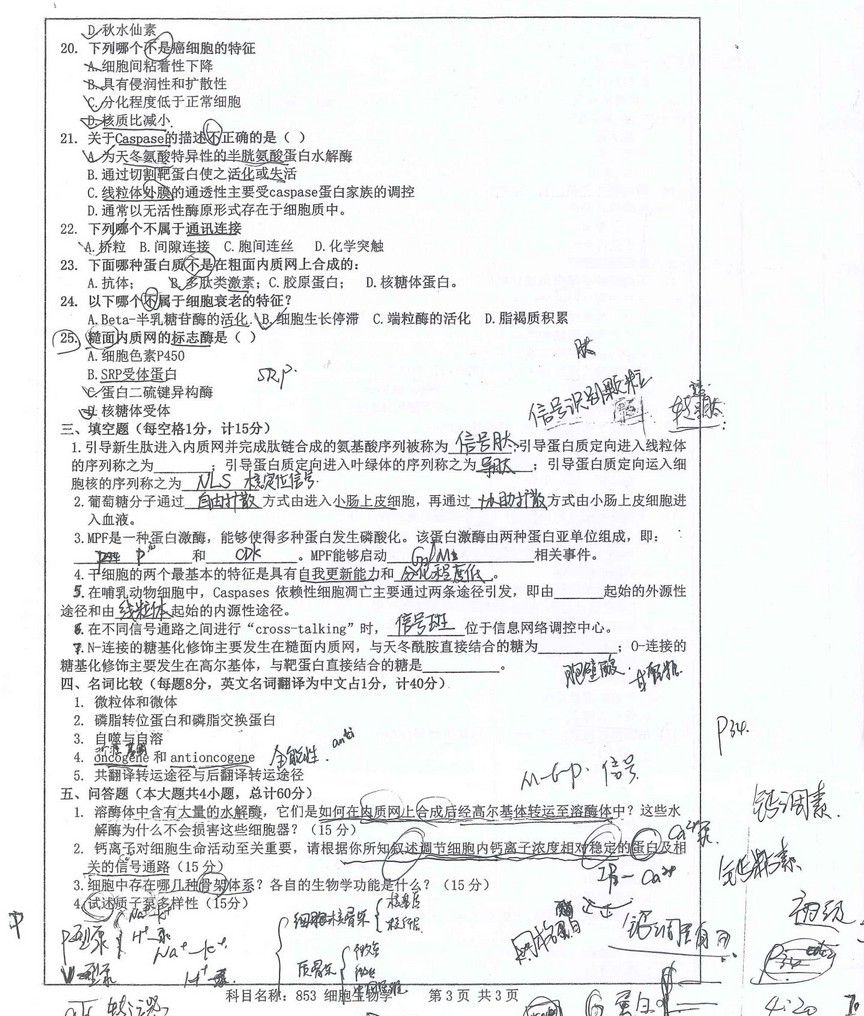 D.秋水仙素
20. 下列哪个不是癌细胞的特征
A.细胞间粘着性下降
B.具有侵润性和扩散性
C.分化程度低于正常细胞
D.核质比减小
21. 关于Caspase的描述不正确的是（ ）
A.为天冬氨酸特异性的半胱氨酸蛋白水解酶
B.通过切割靶蛋白使之活化或失活
C.线粒体外膜的通透性主要受caspase蛋白家族的调控
D.通常以无活性酶原形式存在于细胞质中。
22. 下列哪个不属于通讯连接
A.桥粒 B.间隙连接 C.胞间连丝 D.化学突触
23. 下面哪种蛋白质不是在粗面内质网上合成的：
A.抗体； B.多肽类激素；C.胶原蛋白； D.核糖体蛋白。
24. 以下哪个不属于细胞衰老的特征？
A.Beta-半乳糖苷酶的活化 B.细胞生长停滞 C.端粒酶的活化 D.脂褐质积累
25. 糙面内质网的标志酶是（ ）
A.细胞色素P450
肽
B.SRP受体蛋白 SRP.
C.蛋白二硫键异构酶
信号识别颗粒
D.核糖体受体
三、填空题（每空格1分，计15分）
1.引导新生肽进入内质网并完成肽链合成的氨基酸序列被称为 信号肽；引导蛋白质定向进入线粒体
的序列称之为______；引导蛋白质定向进入叶绿体的序列称之为 导肽 ；引导蛋白质定向运入细
胞核的序列称之为 NLS 核定位信号.
2.葡萄糖分子通过 自由扩散 方式由进入小肠上皮细胞，再通过 协助扩散 方式由小肠上皮细胞进
入血液。
3.MPF是一种蛋白激酶，能够使得多种蛋白发生磷酸化。该蛋白激酶由两种蛋白亚单位组成，即：
和 CDK 。MPF能够启动 G₂/M 相关事件。
4.干细胞的两个最基本的特征是具有自我更新能力和 分化程度低 。
5.在哺乳动物细胞中，Caspases 依赖性细胞凋亡主要通过两条途径引发，即由______起始的外源性
途径和由 线粒体 起始的内源性途径。
6.在不同信号通路之间进行“cross-talking”时， 信号斑 位于信息网络调控中心。
7.N-连接的糖基化修饰主要发生在糙面内质网，与天冬酰胺直接结合的糖为______；O-连接的
糖基化修饰主要发生在高尔基体，与靶蛋白直接结合的糖是______。
四、名词比较（每题8分，英文名词翻译为中文占1分，计40分）
1. 微粒体和微体
2. 磷脂转位蛋白和磷脂交换蛋白
P34.
3. 自噬与自溶
4. oncogene 和 antioncogene 全能性. anti
5. 共翻译转运途径与后翻译转运途径
M-6-P. 信号
五、问答题（本大题共4小题，总计60分）
1. 溶酶体中含有大量的水解酶，它们是如何在内质网上合成后经高尔基体转运至溶酶体中？这些水
解酶为什么不会损害这些细胞器？（15 分）
钙调素.
2. 钙离子对细胞生命活动至关重要，请根据你所知叙述调节细胞内钙离子浓度相对稳定的蛋白及相
关的信号通路（15 分）
Ca²⁺泵
3.细胞中存在哪几种骨架体系？各自的生物学功能是什么？（15 分）
4.试述质子泵多样性（15分）
P型泵
Na⁺-K⁺
H⁺泵
V-型泵
细胞核骨架
质骨架
科目名称：853 细胞生物学 第 3 页 共 3 页
4:20